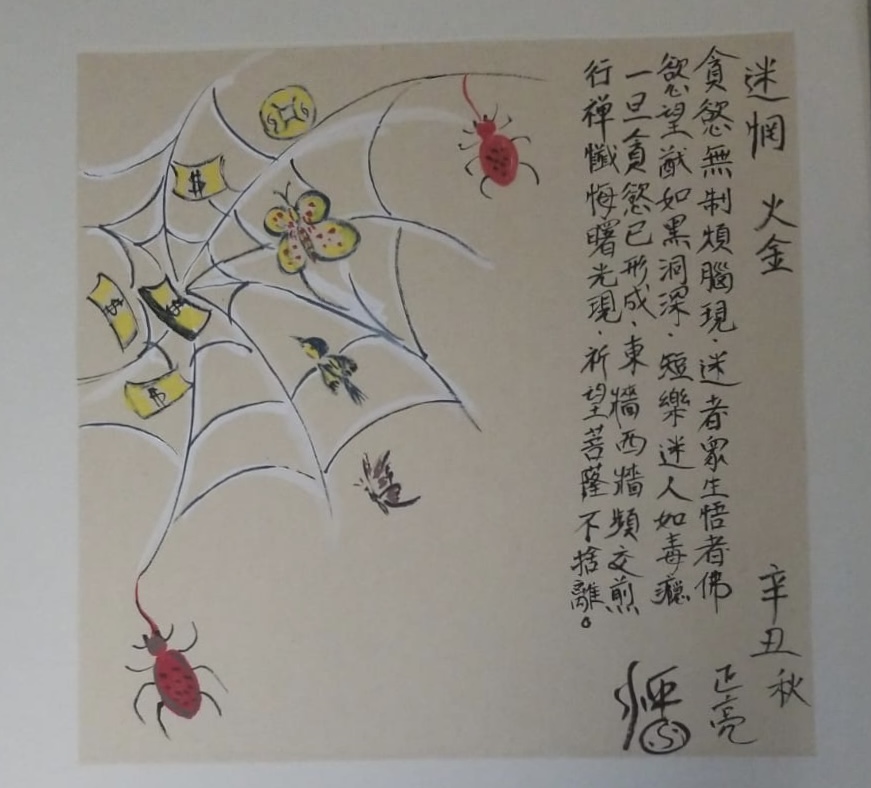 迷惘 火金
貪慾無制煩腦現．迷者眾生悟者佛
慾望猷如黑洞深．短樂迷人如毒癮
一旦貪慾已形成．東牆西牆頻交煎
行禪懺悔曙光現．祈望菩薩不捨離。
辛丑秋
正亮
$
$
$
$